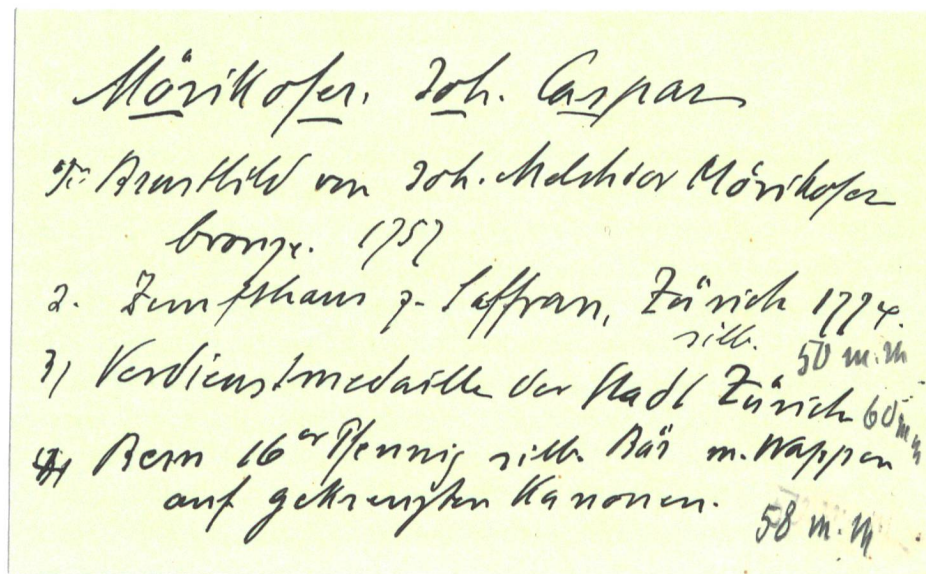 Mörikofer. Joh. Caspar
1. Brustbild von Joh. Melchior Mörikofer
bronze. 1757
2. Zunfthaus z. Saffran, Zürich 1774.
silb. 50 m.m
3) Verdienstmedaille der Stadt Zürich 60 m m
4) Bern 16er Pfennig silb. Bär m. Wappen
auf gekreuzten Kanonen.
58 m.m